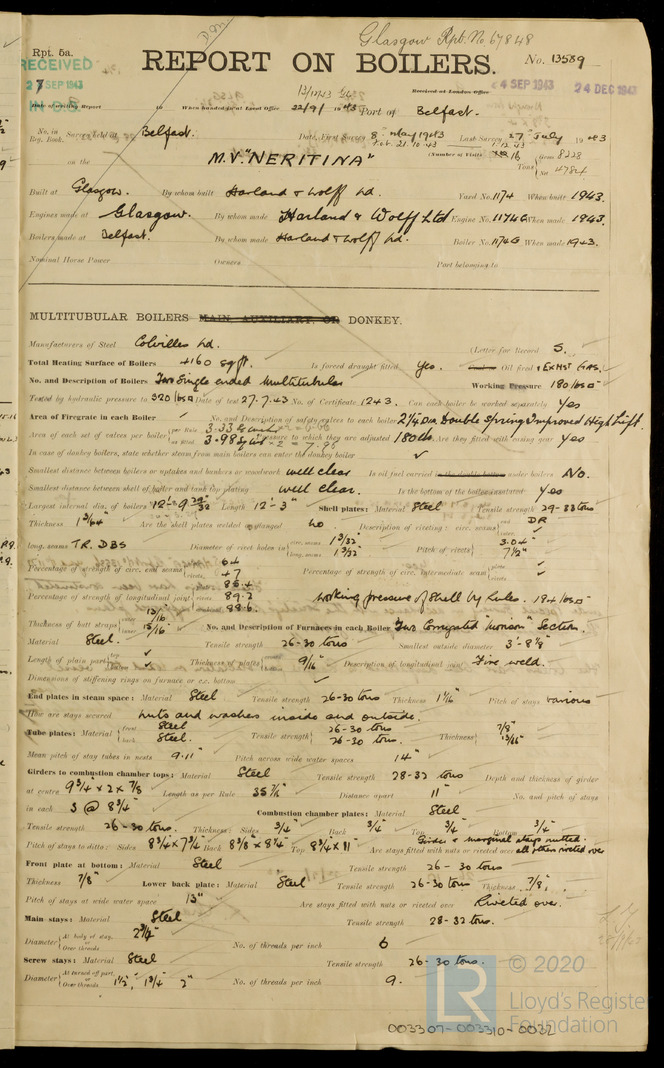 Glasgow Rpt. No 67848
Rpt. 5a.
REPORT ON BOILERS.
No. 13589
RECEIVED
27 SEP 1943
Received at London Office
4 SEP 1943
24 DEC 1943
Date of writing Report
When handed in at Local Office 22/9/ 1943 Port of Belfast.
No. in Reg. Book.
Survey held at Belfast.
Date, First Survey 8th May 1943 Last Survey 27th July 1943
Feb. 21.10.43
(Number of Visits 16
on the
M.V. "NERITINA"
Tons Gross 8228
Net 4784
Built at Glasgow. By whom built Harland & Wolff Ltd. Yard No. 1174 When built 1943.
Engines made at Glasgow. By whom made Harland & Wolff Ltd Engine No. 1174G When made 1943.
Boilers made at Belfast. By whom made Harland & Wolff Ltd. Boiler No. 1174G When made 1943.
Nominal Horse Power Owners Port belonging to
MULTITUBULAR BOILERS MAIN, AUXILIARY, OR DONKEY.
Manufacturers of Steel Colvilles Ltd. (Letter for Record S.
Total Heating Surface of Boilers 4160 sq ft. Is forced draught fitted Yes. Oil fired & EXHST GAS.
No. and Description of Boilers Two Single ended Multitubular Working Pressure 180 lbs
Tested by hydraulic pressure to 320 lbs Date of test 27.7.43 No. of Certificate 1243. Can each boiler be worked separately Yes
Area of Firegrate in each Boiler ✓ No. and Description of safety valves to each boiler 2 1/4 Dia. Double Spring Improved High Lift.
Area of each set of valves per boiler per Rule 3.33
as fitted 3.98 Pressure to which they are adjusted 180 lbs Are they fitted with easing gear Yes
In case of donkey boilers, state whether steam from main boilers can enter the donkey boiler ✓
Smallest distance between boilers or uptakes and bunkers or woodwork well clear Is oil fuel carried in the double bottom under boilers No.
Smallest distance between shell of boiler and tank top plating well clear. Is the bottom of the boiler insulated Yes
Largest internal dia. of boilers 12'-9 29/32 Length 12'-3" Shell plates: Material Steel Tensile strength 29-33 tons
Thickness 1 3/64 Are the shell plates welded or flanged No Description of riveting: circ. seams end DR
long. seams TR. DBS Diameter of rivet holes in circ. seams 1 3/32
long. seams 1 3/32 Pitch of rivets 3.04
7 1/2"
Percentage of strength of circ. end seams plate 64
rivets 47 Percentage of strength of circ. intermediate seam plate ✓
rivets ✓
Percentage of strength of longitudinal joint plate 85.4
rivets 89.2
combined 88.6 Working pressure of Shell by Rules. 184 lbs
Thickness of butt straps outer 13/16
inner 15/16 No. and Description of Furnaces in each Boiler Two Corrugated "Morison" Section.
Material Steel. Tensile strength 26-30 tons Smallest outside diameter
Length of plain part top ✓
bottom ✓ Thickness of plates 9/16 Description of longitudinal joint Fire weld.
Dimensions of stiffening rings on furnace or c.c. bottom ✓
End plates in steam space: Material Steel Tensile strength 26-30 tons Thickness 1 1/16" Pitch of stays various
How are stays secured nuts and washers inside and outside.
Tube plates: Material front Steel
back Steel. Tensile strength 26-30 tons
26-30 tons. Thickness 7/8"
13/16"
Mean pitch of stay tubes in nests 9.11" Pitch across wide water spaces 14"
Girders to combustion chamber tops: Material Steel Tensile strength 28-32 tons Depth and thickness of girder
at centre 9 3/4 x 2 x 7/8 Length as per Rule Distance apart 11" No. and pitch of stays
in each 3 @ 8 3/4" Combustion chamber plates: Material Steel
Tensile strength 26-30 tons. Thickness: Sides 3/4" Back 3/4" Top 3/4" Bottom 3/4"
Pitch of stays to ditto: Sides 8 3/4 x 7 3/4 Back 8 3/8 x 8 1/4 Top 8 3/4 x 11" Are stays fitted with nuts or riveted over Girder & marginal stays nutted. all others riveted over
Front plate at bottom: Material Steel Tensile strength 26-30 tons
Thickness 7/8" Lower back plate: Material Steel Tensile strength 26-30 tons Thickness 7/8.
Pitch of stays at wide water space 13" Are stays fitted with nuts or riveted over Riveted over.
Main stays: Material Steel Tensile strength 28-32 tons.
Diameter At body of stay, or Over threads 2 3/4" No. of threads per inch 6
Screw stays: Material Steel Tensile strength 26-30 tons.
Diameter At turned off part, or Over threads 1 1/2", 1 3/4" 2" No. of threads per inch 9.
LR © 2020
Lloyd's Register
Foundation
003307-003310-0032